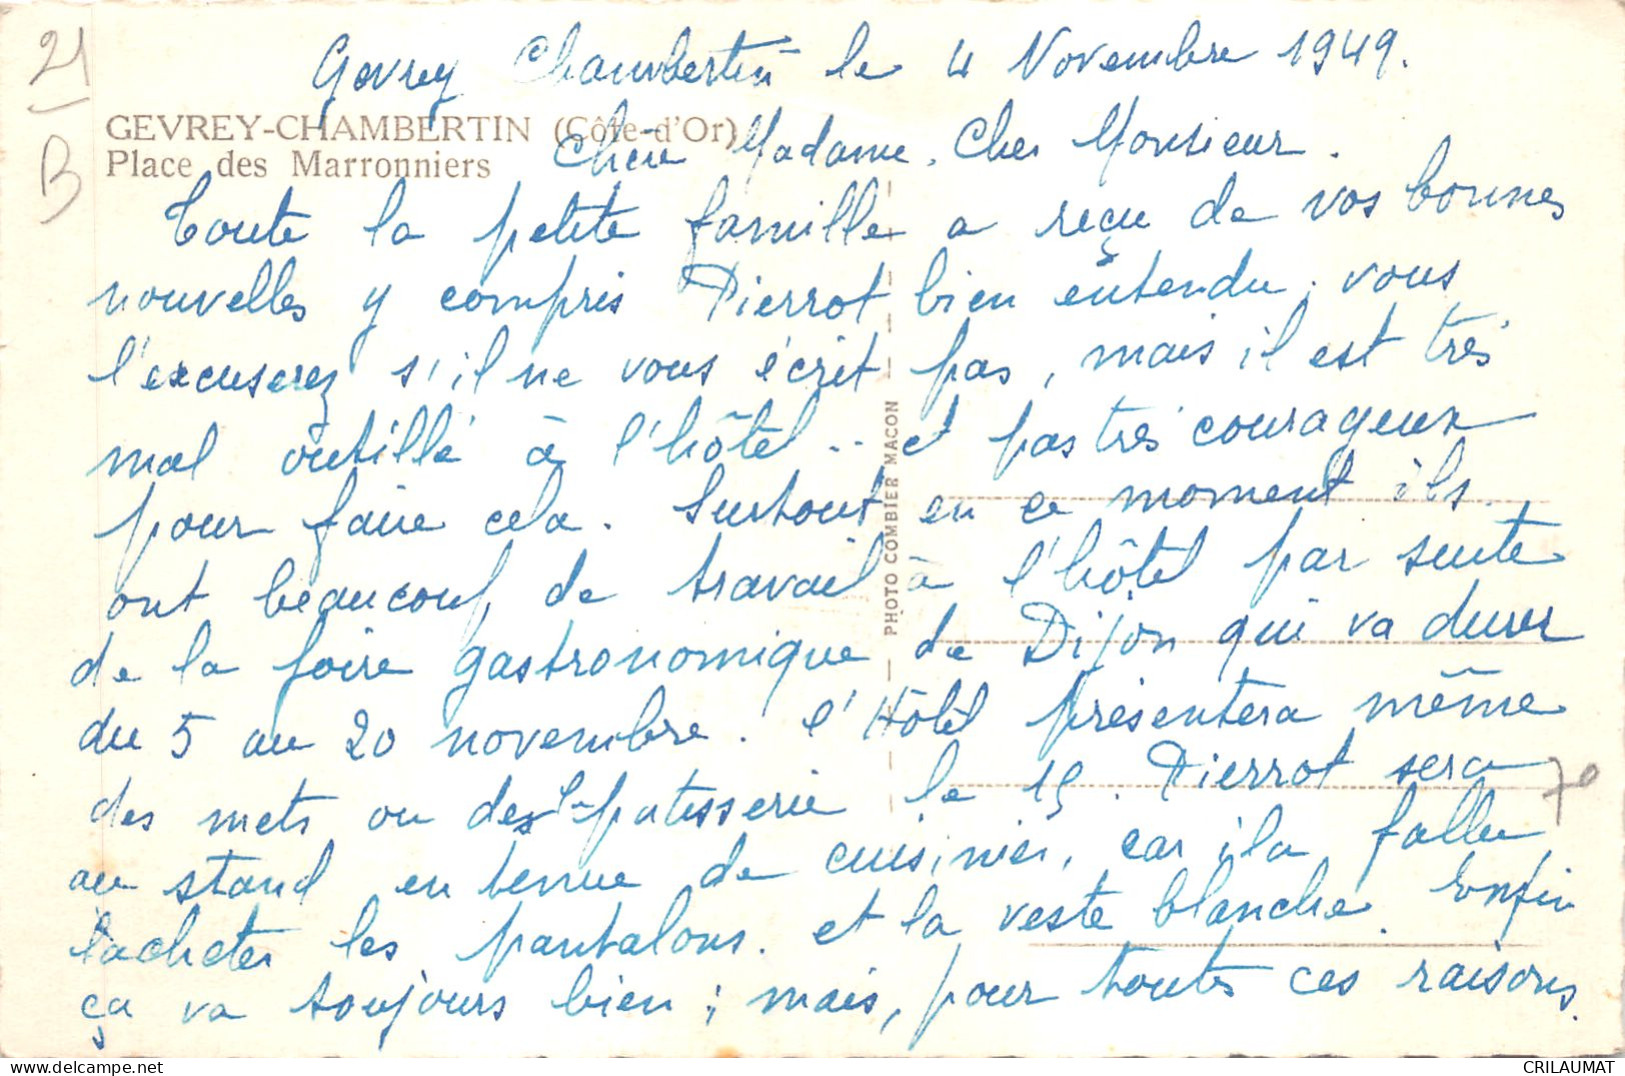 21
B
Gevrey Chambertin le 4 Novembre 1949.
GEVREY-CHAMBERTIN (Côte-d'Or)
Place des Marronniers
Chère Madame, Cher Monsieur.
Toute la petite famille a reçu de vos bonnes
nouvelles y compris Pierrot bien entendu, vous
l'excuserez s'il ne vous écrit pas, mais il est très
mal outillé à l'hôtel .. et pas très courageux
pour faire cela. Surtout en ce moment ils
ont beaucoup de travail à l'hôtel par suite
de la foire gastronomique de Dijon qui va durer
du 5 au 20 novembre. l'Hôtel présentera même
des mets ou de la patisserie le 15. Pierrot sera
au stand en tenue de cuisinier, car il a fallu
l'acheter les pantalons. et la veste blanche. Enfin
ça va toujours bien ; mais, pour toutes ces raisons.
PHOTO COMBIER MACON
70
CRILAUMAT